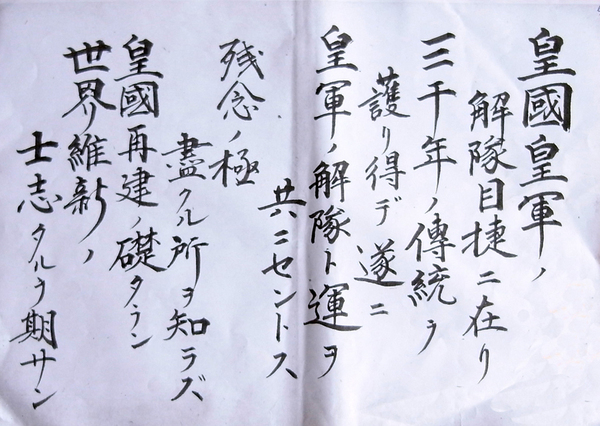 皇國皇軍ノ
解隊目捷ニ在り
三千年ノ傳統ヲ
護り得デ遂ニ
皇軍ノ解隊ト運ヲ
共ニセントス
残念ノ極
盡クル所ヲ知ラズ
皇國再建ノ礎タラン
世界維新ノ
士志タルヲ期サン